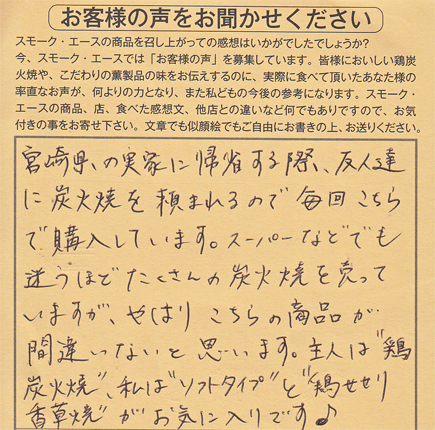 お客様の声をお聞かせください
スモーク・エースの商品を召し上がっての感想はいかがでしたでしょうか?
今、スモーク・エースでは「お客様の声」を募集しています。皆様においしい鶏炭
火焼や、こだわりの薫製品の味をお伝えするのに、実際に食べて頂いたあなた様の
率直なお声が、何よりの力となり、また私どもの今後の参考になります。スモーク・
エースの商品、店、食べた感想文、他店との違いなど何でもありですので、お気
付きの事をお寄せ下さい。文章でも似顔絵でもご自由にお書きの上、お送りください。
宮崎県の実家に帰省する際、友人達
に炭火焼を頼まれるので毎回こちら
で購入しています。スーパーなどでも
迷うほどたくさんの炭火焼を売って
いますが、やはりこちらの商品が
間違いないと思います。主人は"鶏
炭火焼"、私は"ソフトタイプ"と"鶏せせり
香草焼"がお気に入りです♪